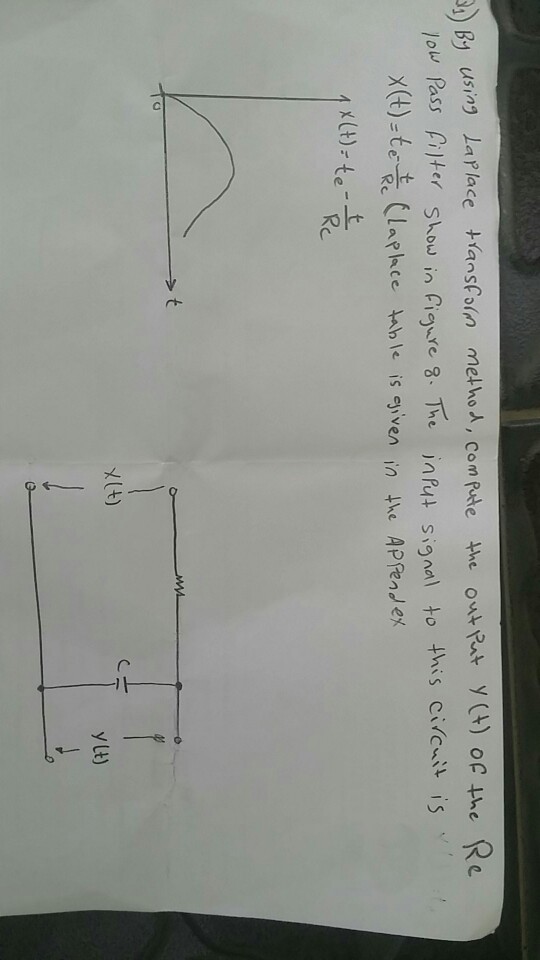 Q1) By using Laplace transform method, compute the output y(t) of the Rc
low Pass filter show in figure 8. The input signal to this circuit is
x(t)=te-t/Rc (Laplace table is given in the Appendex
x(t)=te-t/Rc
0
t
x(t)
C
y(t)